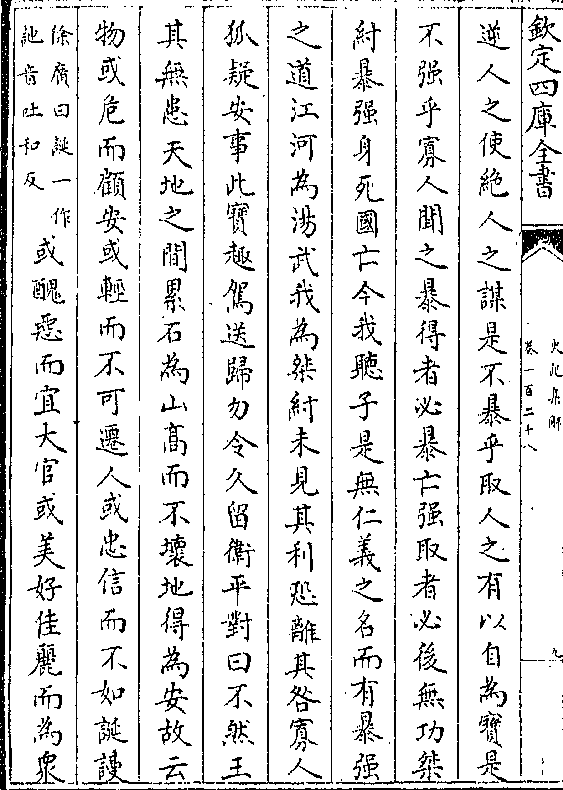 欽定四庫全書
史記集解
卷一百二十八
九
逆人之使絶人之謀是不暴乎取人之有以自為寶是
不强乎寡人聞之暴得者必暴亡强取者必後無功桀
紂暴强身死國亡今我聽子是無仁義之名而有暴强
之道江河為湯武我為桀紂未見其利恐離其咎寡人
狐疑安事此寶趣駕送歸勿令久留衛平對曰不然王
其無患天地之間累石為山髙而不壞地得為安故云
物或危而顧安或輕而不可遷人或忠信而不如誕謾
徐廣曰誕一作
訑音吐和反
或醜惡而宜大官或美好佳麗而為衆